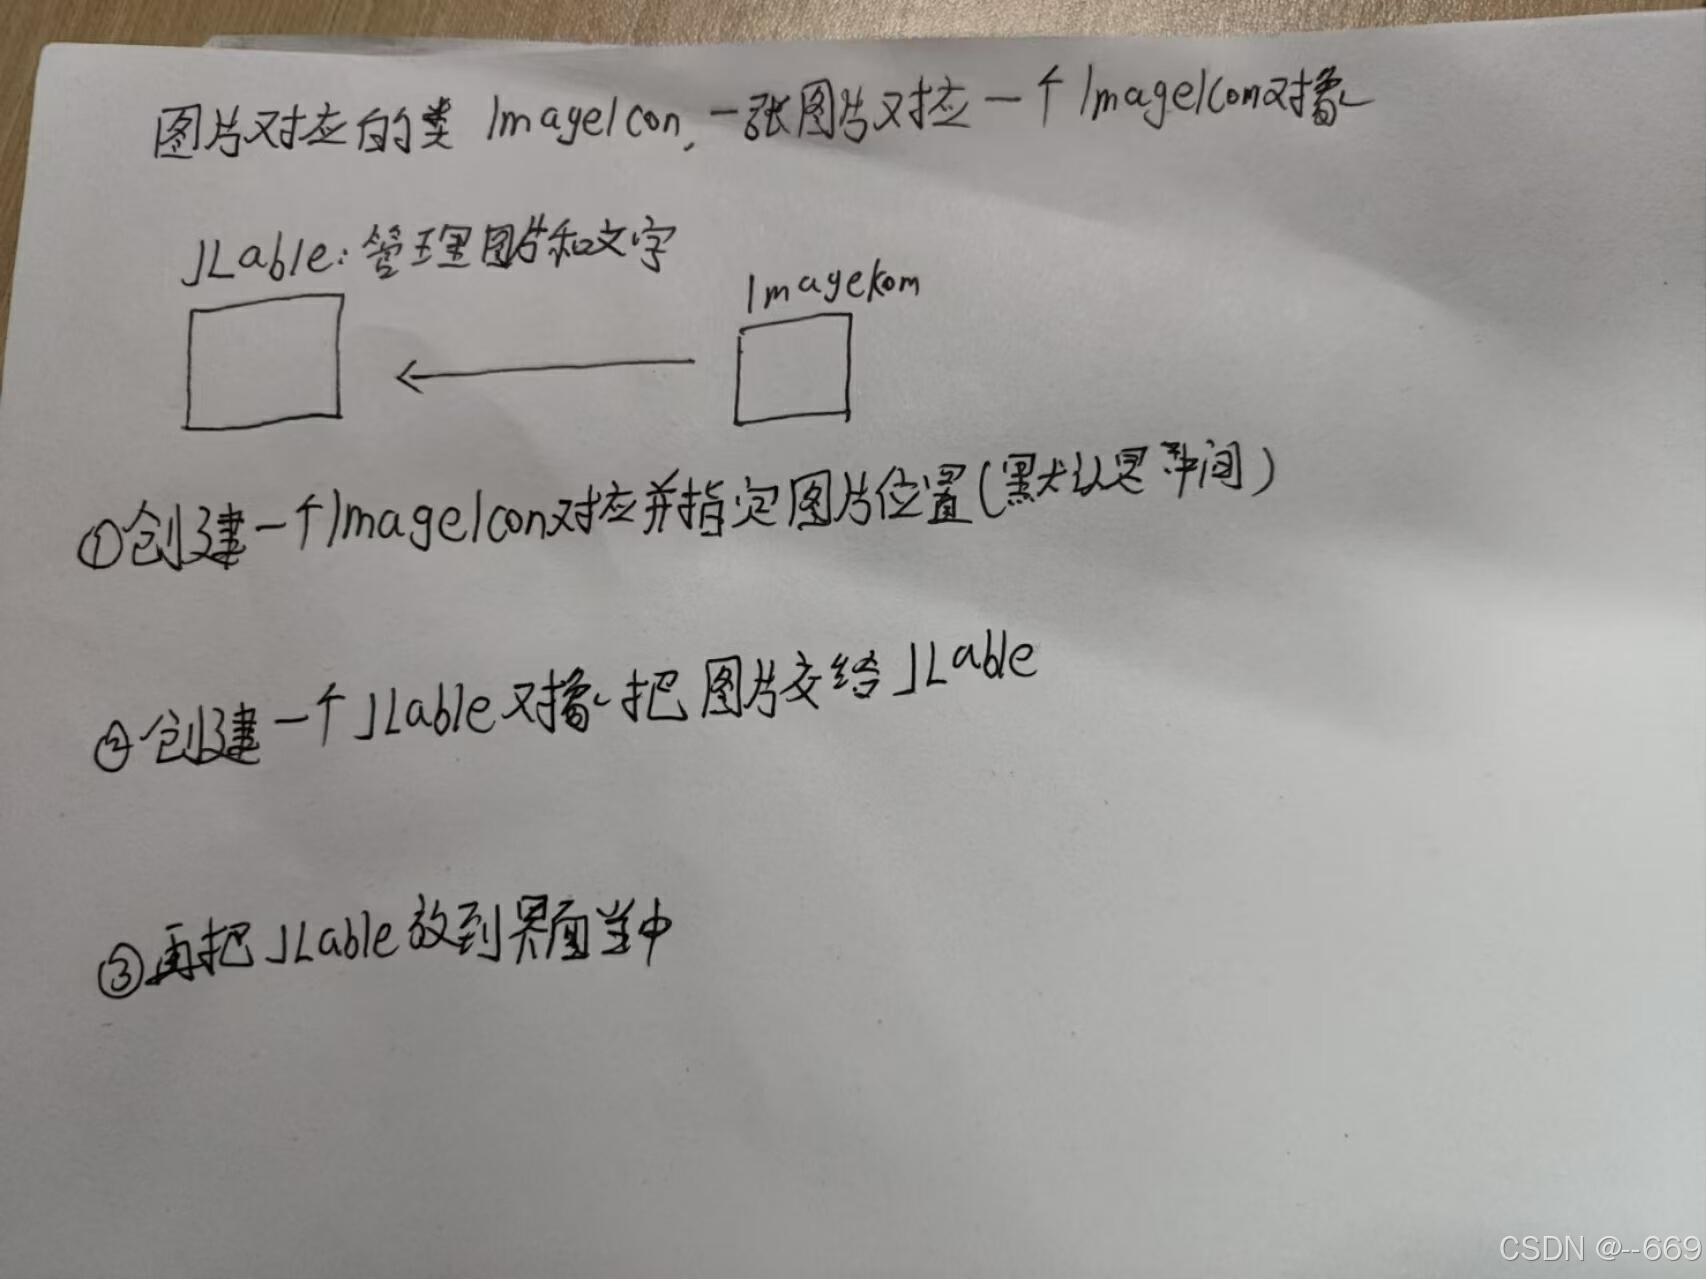 图片对应的类 ImageIcon,一张图片对应一个ImageIcon对象
JLable:管理图片和文字
Imagekom
①创建一个ImageIcon对应并指定图片位置(默认是中间)
②创建一个JLable对象把图片交给JLable
③再把JLable放到界面当中
CSDN @--669